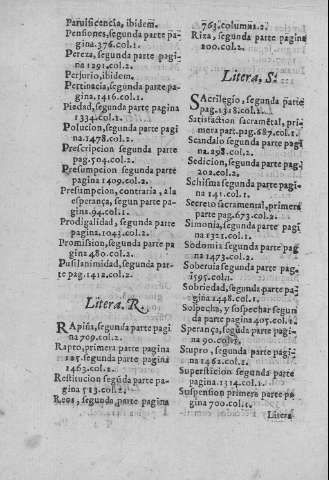 Paruificencia, ibidem.
Pensiones, segunda parte pa-
gina.376.col.1.
Pereza, segunda parte pagi-
na 1291.col.2.
Perjurio, ibidem.
Pertinacia, segunda parte pa-
gina.1416.col.1.
Piedad, segunda parte pagina
1334.col.2.
Polucion, segunda parte pagi
na.1478.col.2.
Prescripcion segunda parte
pag.504.col.2.
Presumpcion segunda parte
pagina 1409.col.2.
Presumpcion, contraria, a la
esperança, segun parte pa-
gina.94.col.1.
Prodigalidad, segunda parte
pagina.1043.col.2.
Promision, segunda parte pa
gina 480.col.2.
Pusilanimidad, segunda par-
te pag.1412.col.2.
Litera. R.
RApiña, segunda parte pagi
na 709.col.2.
Rapto, primera parte pagina
125. segunda parte pagina
1463.col.2.
Restitucion segūda parte pa-
gina 513.col.2.
Reos, segunda, parte pagina
763.columna.2.
Riza, segunda parte pagina
200.col.2.
Litera, S.
SAcrilegio, segunda parte
pag.1318.col.2.
Satisfaction sacramētal, pri-
mera part.pag.687.col.1.
Scandalo segunda parte pagi
na.298.col.2.
Sedicion, segunda parte pag.
202.col.2.
Schisma segunda parte pagi-
na 141.col.1.
Secreto sacramental, primera
parte pag.673.col.2.
Simonia, segunda parte pagi
na 1321.col.1.
Sodomia segunda parte pagi
na 1473.col.2.
Soberuia segunda parte pag.
1595.col.1.
Sobriedad, segunda parte pa-
gina 1448.col.1.
Sospecha, y sospechar segun
da parte pagina 405.col.1.
Sperança, segūda parte pagi-
na 90.col.1.
Stupro, segunda parte pagi-
na 1462.col.2.
Superstícion segunda parte
pagina.1314.col.1.
Suspension primera parte pa
gina 700.col.1.
Litera